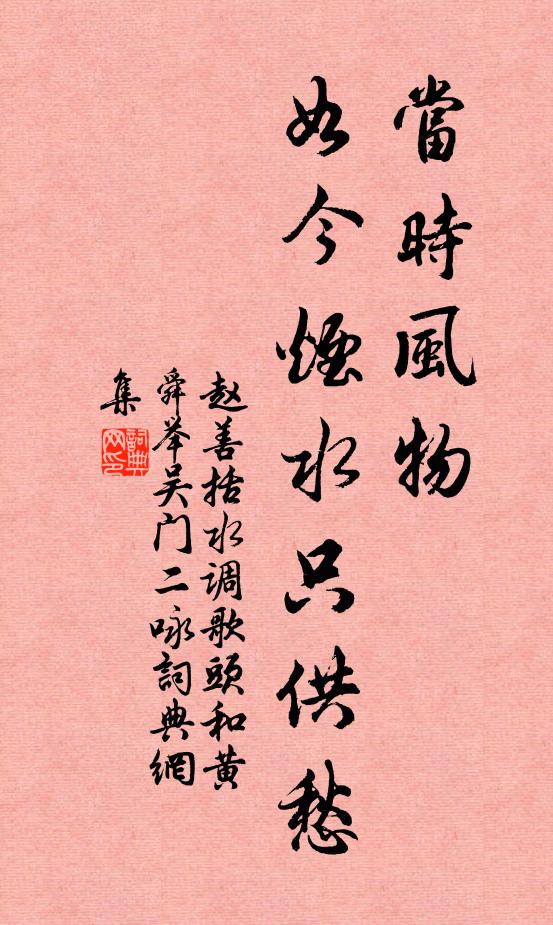 當時風物
如今煙水只供愁
赵善括水调歌頭和黄
舜举吴门二咏詞典網
集
詞典
网印